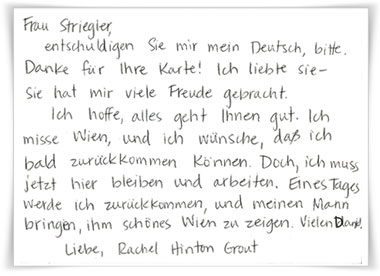 Frau Striegler,
entschuldigen Sie mir mein Deutsch, bitte.
Danke für Ihre Karte! Ich liebte sie-
Sie hat mir viele Freude gebracht.
Ich hoffe, alles geht Ihnen gut. Ich
misse Wien, und ich wünsche, daß ich
bald zurückkommen können. Doch, ich muss
jetzt hier bleiben und arbeiten. Eines Tages
werde ich zurückkommen, und meinen Mann
bringen, ihm schönes Wien zu zeigen. Vielen Dank.
Liebe, Rachel Hinton Grout